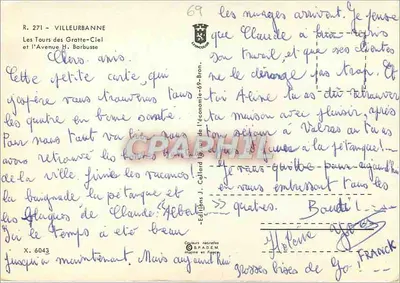 R. 271 - VILLEURBANNE
Les Tours des Gratte-Ciel
et l'Avenue H. Barbusse
69
Chers amis.
Cette petite carte, qui
j'espère vous trouveras tous
les quatre en bonne santé.
Pour nous tout va bien, nous
avons retrouvé les
de la ville finie les vacances!
la baignade, la pétanque et
les blagues de Claude. Albert
Ici le temps a été beau
jusqu'à maintenant. Mais aujourd'hui
X. 6043
Editions J. Cellard
de l'économie-69-Bron.
Couleurs naturelles
SPADEM
CPARAMA
les nuages arrivent. Je pense
que Claude a repris
son travail, et que ses clientes
ne le dérange pas trop. Et
toi Aline tu as dû retrouver
ta maison avec plaisir, après
ton séjour à Valras où tu as
à la pétanque!
Je vais quitter pour aujourd'hui
en vous embrassant tous les
quatres.
Hélène
FRANCK
Grosses bises de